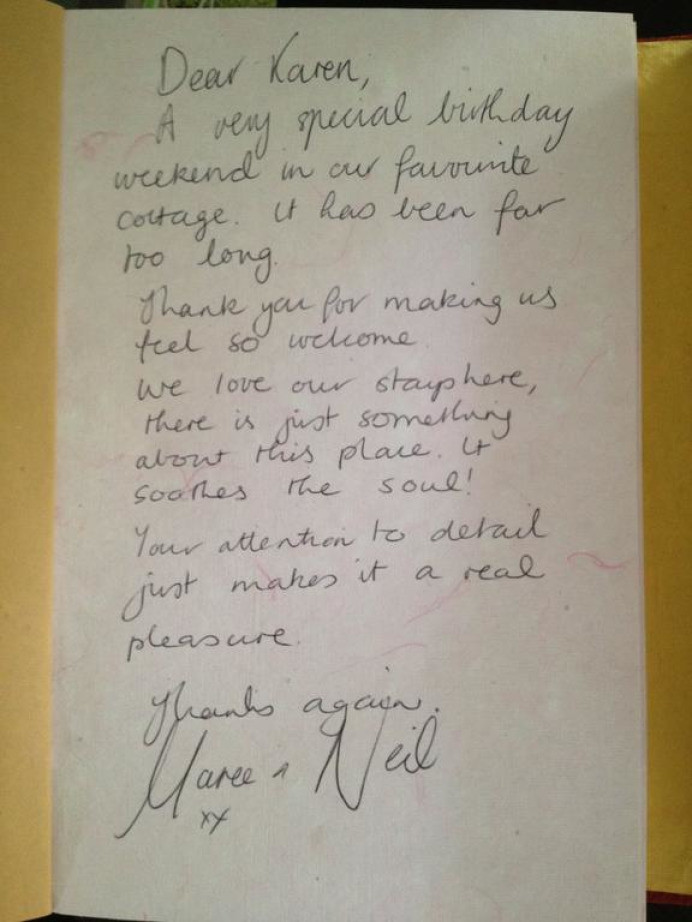 Dear Karen,
A very special birthday
weekend in our favourite
cottage. It has been far
too long.
Thank you for making us
feel so welcome.
We love our stays here,
there is just something
about this place. It
soothes the soul!
Your attention to detail
just makes it a real
pleasure.
Thanks again.
Maree & Neil
xx